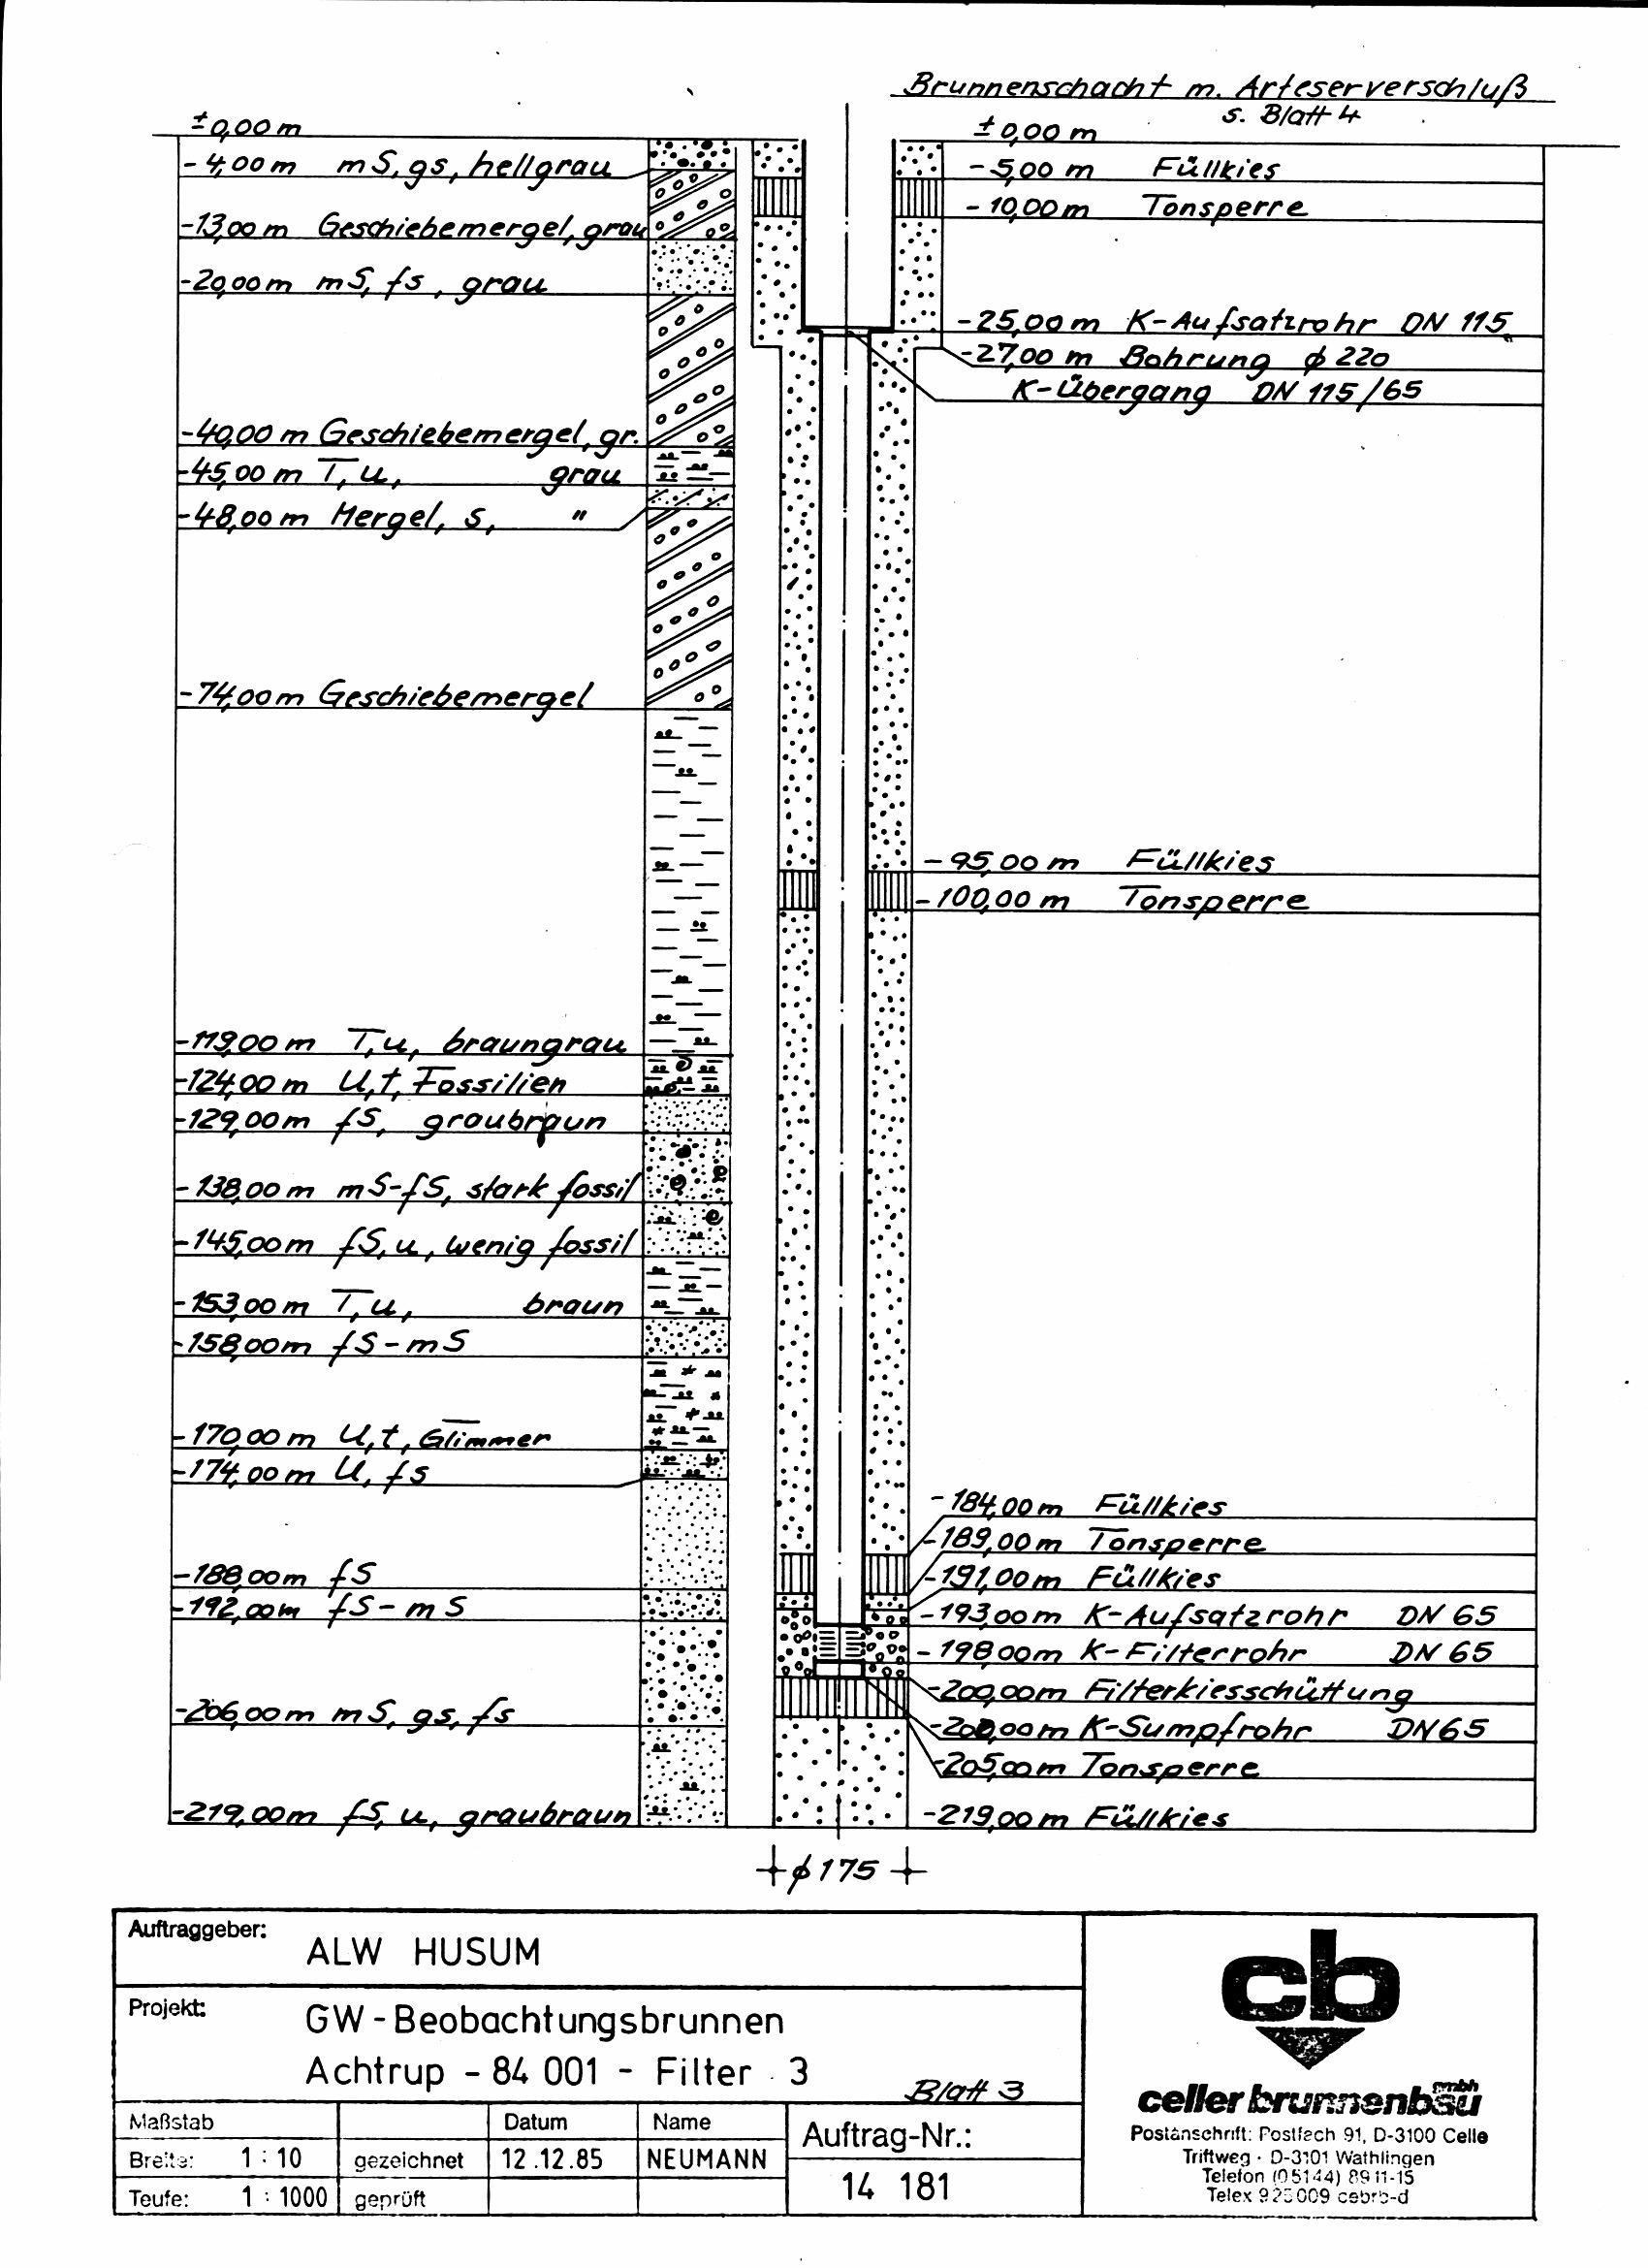 Brunnenschacht m. Arteserverschluß
s. Blatt 4
±0,00 m
-4,00 m mS, gs, hellgrau
-13,00 m Geschiebemergel, grau
-20,00 m mS, fs, grau
-40,00 m Geschiebemergel, gr.
-45,00 m T̅, u, grau
-48,00 m Mergel, s, "
-74,00 m Geschiebemergel
-119,00 m T, u, braungrau
-124,00 m U, t, Fossilien
-129,00 m fS, graubraun
-138,00 m mS-fS, stark fossil
-145,00 m fS, u, wenig fossil
-153,00 m T, u, braun
-158,00 m fS-mS
-170,00 m U, t, Glimmer
-174,00 m U, fs
-188,00 m fS
-192,00 m fS-mS
-206,00 m mS, gs, fs
-219,00 m fS, u, graubraun
±0,00 m
-5,00 m Füllkies
-10,00 m Tonsperre
-25,00 m K-Aufsatzrohr DN 115
-27,00 m Bohrung ϕ 220
K-Übergang DN 115/65
-95,00 m Füllkies
-100,00 m Tonsperre
-184,00 m Füllkies
-189,00 m Tonsperre
-191,00 m Füllkies
-193,00 m K-Aufsatzrohr DN 65
-198,00 m K-Filterrohr DN 65
-200,00 m Filterkiesschüttung
-200,00 m K-Sumpfrohr DN 65
-205,00 m Tonsperre
-219,00 m Füllkies
ϕ 175
Auftraggeber:
ALW HUSUM
Projekt:
GW-Beobachtungsbrunnen
Achtrup - 84 001 - Filter 3
Blatt 3
Maßstab Datum Name
Breite: 1 : 10 gezeichnet 12.12.85 NEUMANN
Teufe: 1 : 1000 geprüft
Auftrag-Nr.:
14 181
cb
celler brunnenbau gmbh
Postanschrift: Postfach 91, D-3100 Celle
Triftweg · D-3101 Wathlingen
Telefon (05144) 8911-15
Telex 925009 cebrb-d